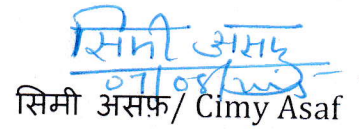 सिमी असफ़
07/08/
सिमी असफ़/ Cimy Asaf